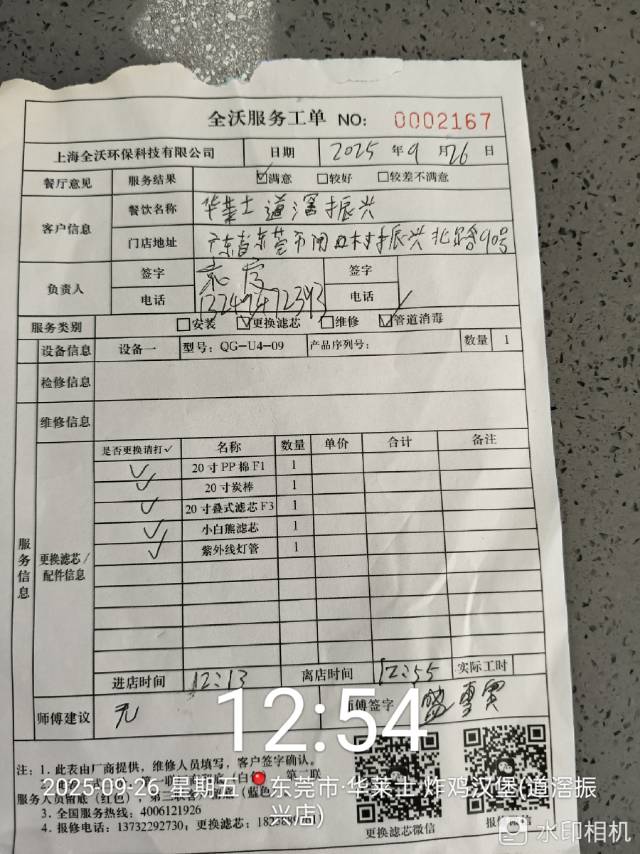 全沃服务工单 NO: 0002167
上海全沃环保科技有限公司 日期 2025 年 9 月 26 日
餐厅意见 服务结果 ☑满意 □较好 □较差不满意
客户信息 餐饮名称 华莱士道滘振兴
门店地址 广东省东莞市 振兴北路90号
负责人 签字 签字
电话 电话
服务类别 □安装 ☑更换滤芯 □维修 ☑管道消毒
设备信息 设备一 型号: QG-U4-09 产品序列号: 数量 1
检修信息
维修信息
服务信息
更换滤芯/配件信息
是否更换请打✓ 名称 数量 单价 合计 备注
✓ 20寸PP棉F1 1
✓ 20寸炭棒 1
✓ 20寸叠式滤芯F3 1
✓ 小白熊滤芯 1
✓ 紫外线灯管 1
进店时间 12:13 离店时间 12:55 实际工时
师傅建议 无 师傅签字
12:54
注: 1. 此表由厂商提供，维修人员填写，客户签字确认。
2025-09-26 星期五 东莞市·华莱士·炸鸡汉堡(道滘振兴店)
服务人员留底（红色），
3. 全国服务热线: 4006121926
4. 报修电话: 13732292730; 更换滤芯:
更换滤芯微信
水印相机